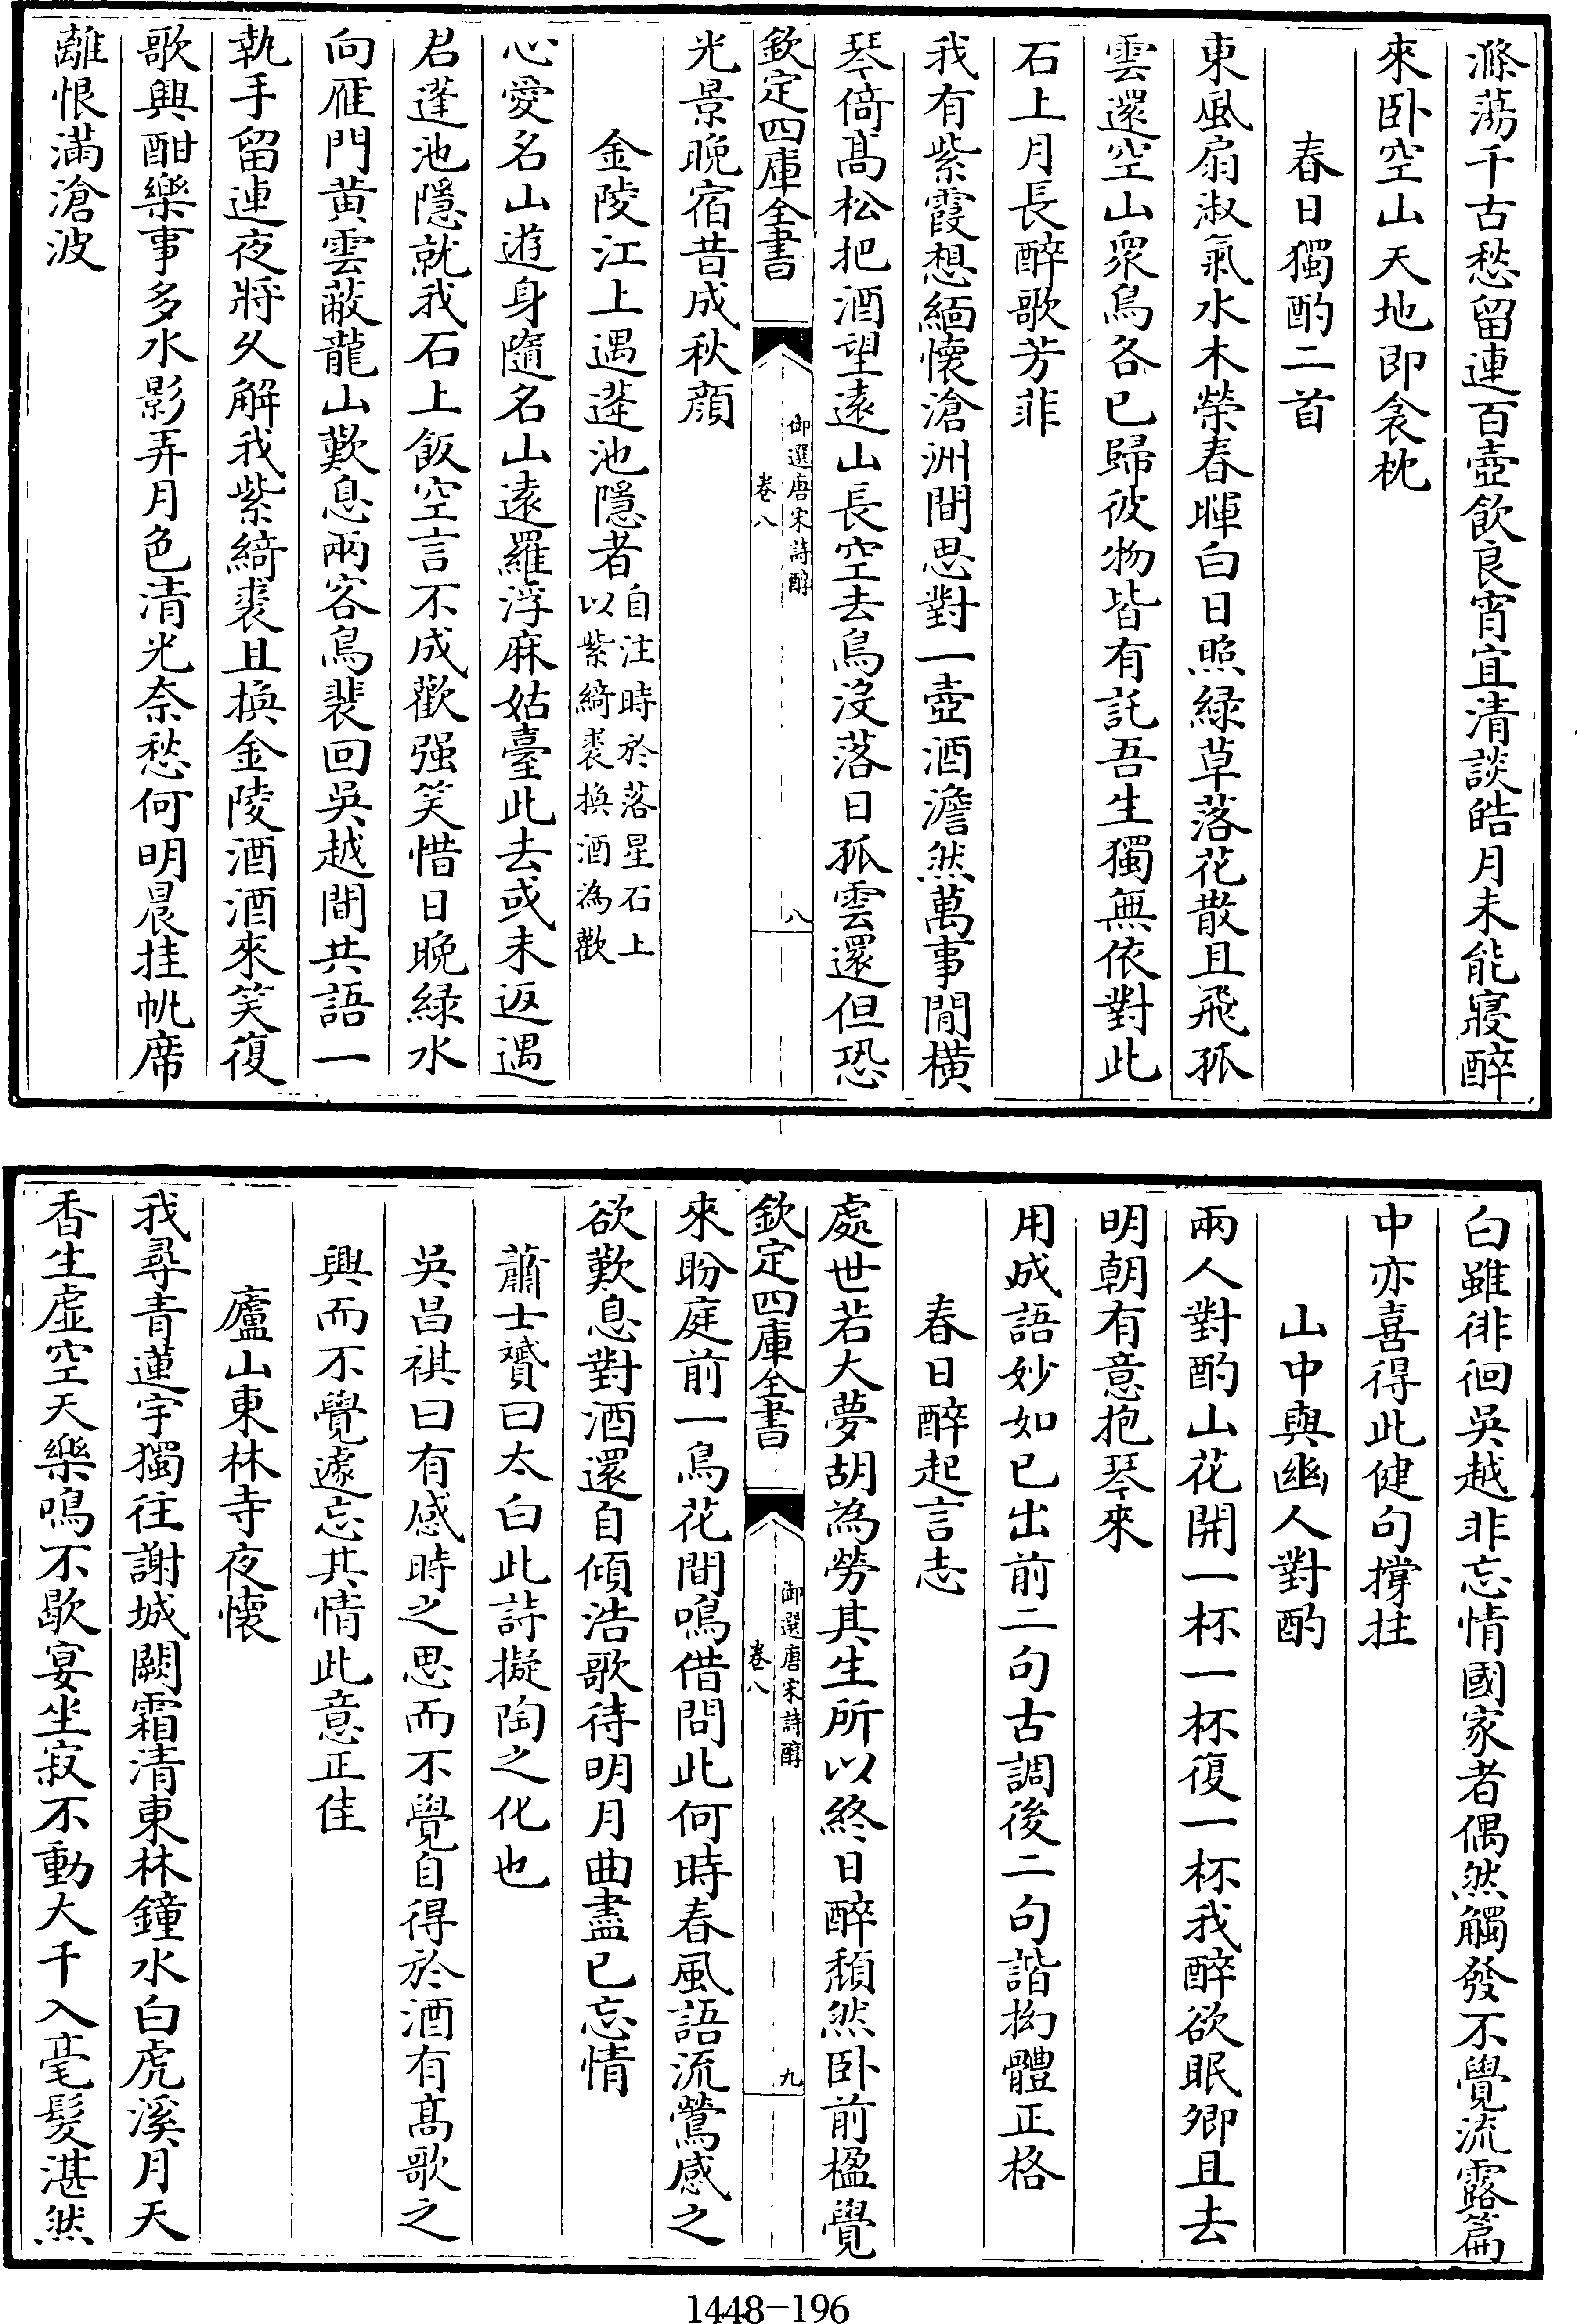 滌蕩千古愁留連百壺飲良宵宜清談皓月未能寢醉
來卧空山天地即衾枕
春日獨酌二首
東風扇淑氣水木榮春暉白日照緑草落花散且飛孤
雲還空山衆鳥各已歸彼物皆有託吾生獨無依對此
石上月長醉歌芳菲
我有紫霞想緬懷滄洲間思對一壺酒澹然萬事閒横
琴倚髙松把酒望遠山長空去鳥没落日孤雲還但恐
欽定四庫全書
御選唐宋詩醇
卷八
八
光景晚宿昔成秋顔
金陵江上遇蓬池隱者自注時於落星石上
以紫綺裘換酒為歡
心愛名山遊身隨名山遠羅浮麻姑臺此去或未返遇
君蓬池隱就我石上飯空言不成歡强笑惜日晚緑水
向雁門黄雲蔽龍山歎息兩客鳥裴回吳越間共語一
執手留連夜將久解我紫綺裘且換金陵酒酒來笑復
歌興酣樂事多水影弄月色清光奈愁何明晨挂帆席
離恨滿滄波
白雖徘徊吳越非忘情國家者偶然觸發不覺流露篇
中亦喜得此健句撐拄
山中與幽人對酌
兩人對酌山花開一杯一杯復一杯我醉欲眠卿且去
明朝有意抱琴來
用成語妙如已出前二句古調後二句諧拗體正格
春日醉起言志
處世若大夢胡為勞其生所以終日醉頽然卧前楹覺
欽定四庫全書
御選唐宋詩醇
卷八
九
來盼庭前一鳥花間鳴借問此何時春風語流鶯感之
欲歎息對酒還自傾浩歌待明月曲盡已忘情
蕭士贇曰太白此詩擬陶之化也
吳昌祺曰有感時之思而不覺自得於酒有髙歌之
興而不覺遽忘其情此意正佳
廬山東林寺夜懷
我尋青蓮宇獨往謝城闕霜清東林鐘水白虎溪月天
香生虚空天樂鳴不歇宴坐寂不動大千入毫髮湛然
1448-196